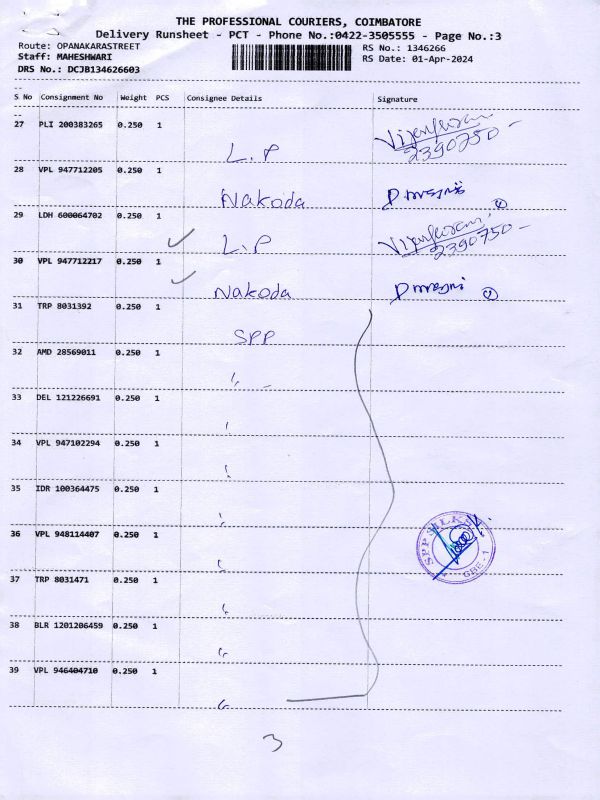 THE PROFESSIONAL COURIERS, COIMBATORE
Delivery Runsheet - PCT - Phone No.:0422-3505555 - Page No.:3
Route: OPANAKARASTREET RS No.: 1346266
Staff: MAHESHWARI RS Date: 01-Apr-2024
DRS No.: DCJB134626603
S No Consignment No Weight PCS Consignee Details Signature
27 PLI 200383265 0.250 1
L.P 2390750
28 VPL 947712205 0.250 1
Nakoda
29 LDH 600064702 0.250 1
L.P 2390750
30 VPL 947712217 0.250 1
Nakoda
31 TRP 8031392 0.250 1
SPP
32 AMD 28569011 0.250 1
33 DEL 121226691 0.250 1
34 VPL 947102294 0.250 1
35 IDR 100364475 0.250 1
36 VPL 948114407 0.250 1
SPP SILKS
CBE - 1
37 TRP 8031471 0.250 1
38 BLR 1201206459 0.250 1
39 VPL 946404710 0.250 1
3